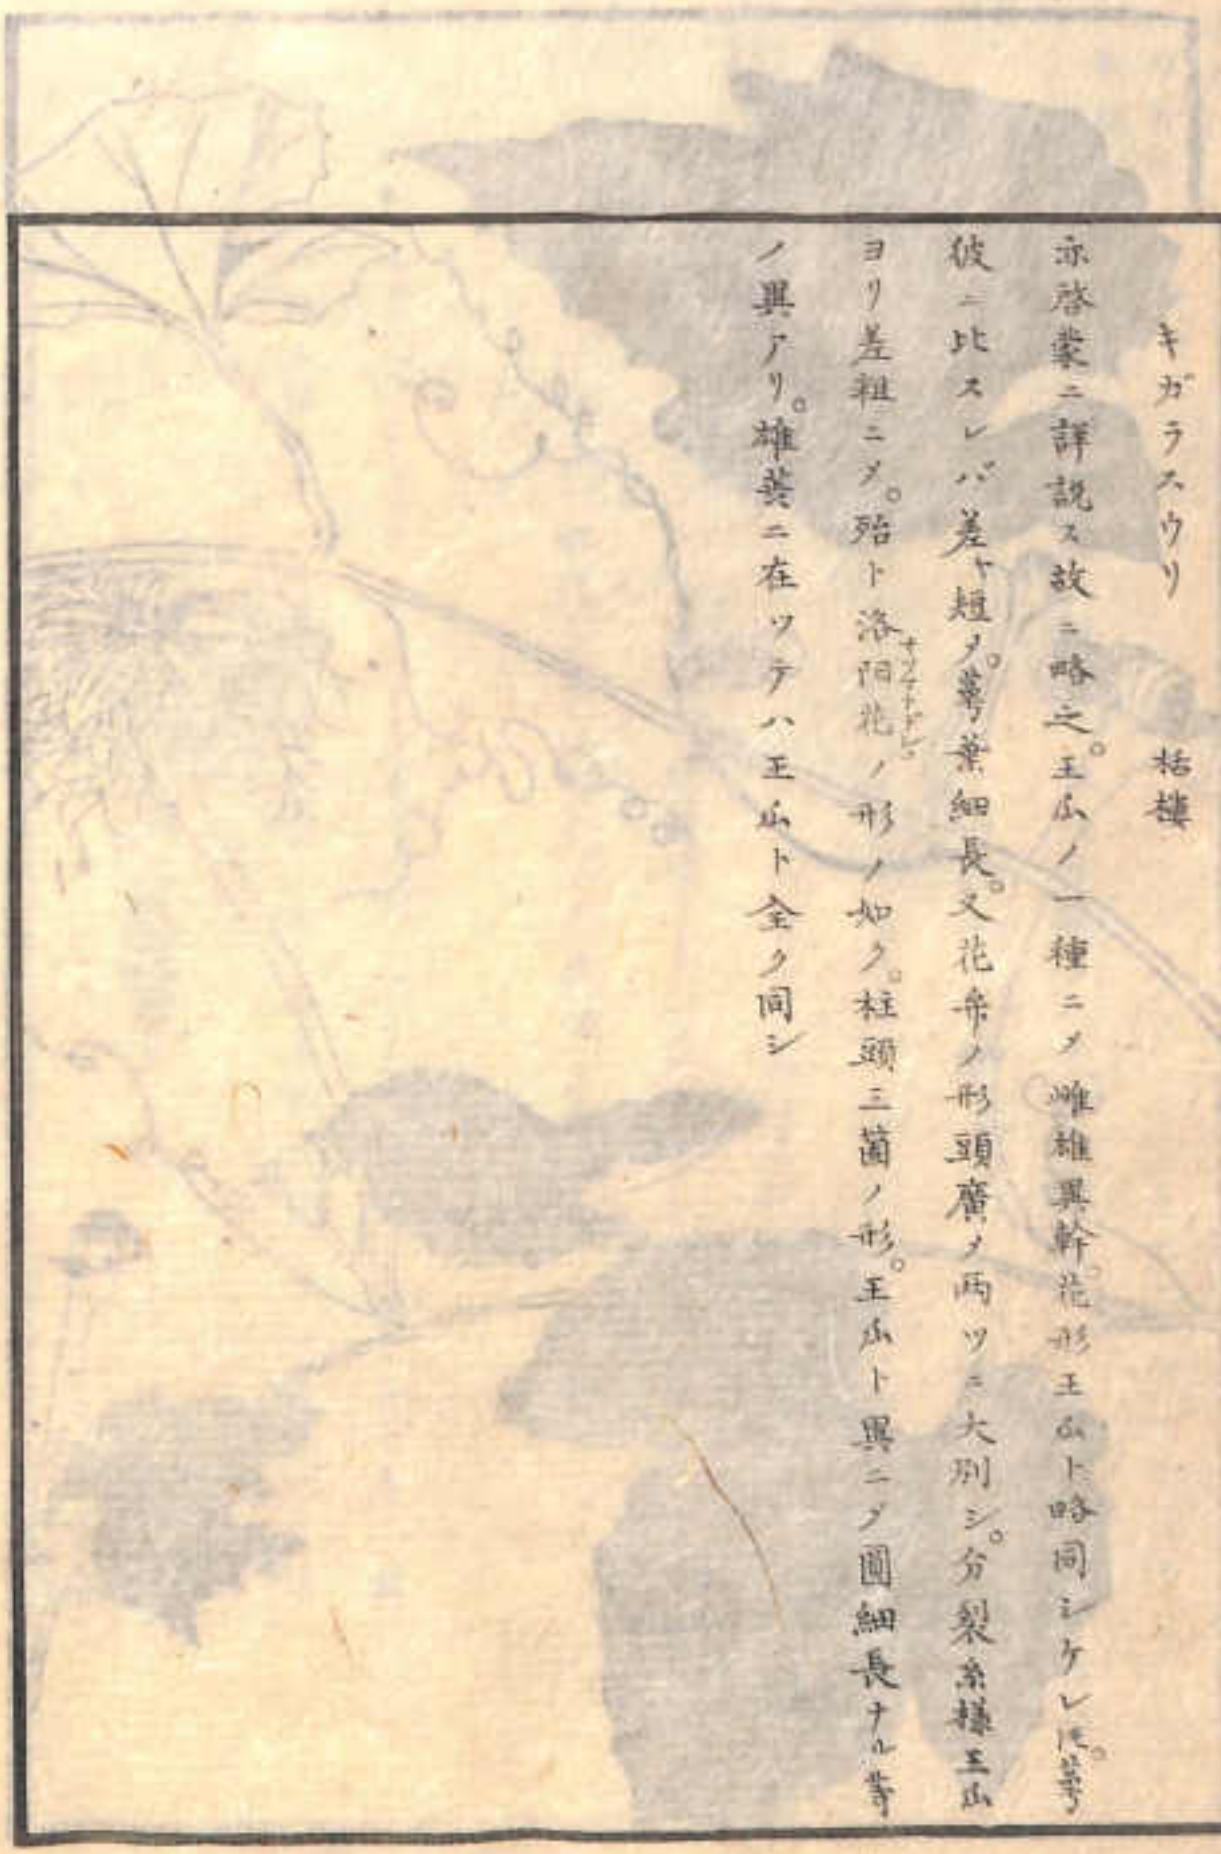 キガラスウリ 栝樓
亦啓蒙ニ詳説ス故ニ略之。王瓜ノ一種ニメ雌雄異幹。花形王瓜ト略同シケレ𪜈。萼
彼ニ比スレバ差ヤ短メ。萼葉細長。又花弁ノ形頭廣メ両ツニ大別シ。分裂糸様王瓜
ヨリ差粗ニメ。殆ト洛陽花ノ形ノ如ク。柱頭三箇ノ形。王瓜ト異ニメ圓細長ナル等
ノ異アリ。雄蕋ニ在ツテハ王瓜ト全ク同シ